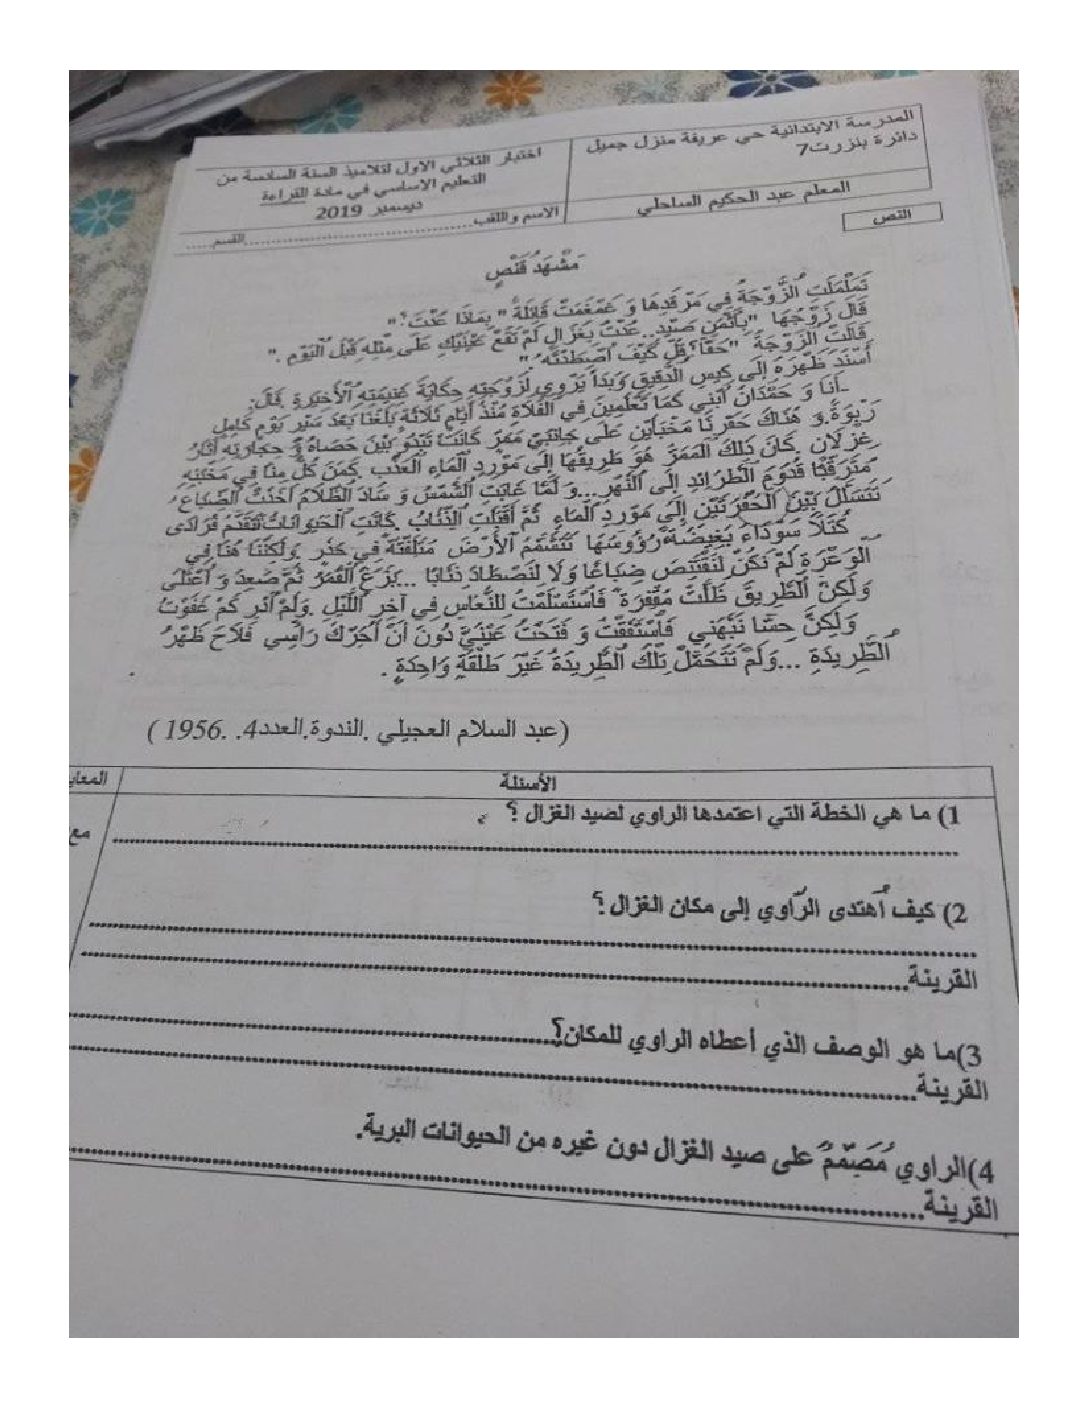 المدرسة الابتدائية حي عريفة منزل جميل
دائرة بنزرت7
المعلم عبد الحكيم الساحلي
اختبار الثلاثي الاول لتلاميذ السنة السادسة من
التعليم الاساسي في مادة القراءة
ديسمبر 2019
الاسم واللقب................................القسم.....
النص
مَشْهَدُ قَنْصٍ
تَمَلْمَلَتِ الزَّوْجَةُ فِي مَرْقَدِهَا وَ غَمْغَمَتْ قَائِلَةً " بِمَاذَا عُدْتَ؟ "
قَالَ زَوْجُهَا "بِأَثْمَنِ صَيْدٍ..عُدْتُ بِغَزَالٍ لَمْ تَقَعْ عَيْنَيْكِ عَلَى مِثْلِهِ قَبْلَ الْيَوْمِ ."
قَالَتْ الزَوْجَةُ "حَقًّا؟ قُلْ كَيْفَ اصْطَدْتَهُ؟"
أَسْنَدَ ظَهْرَهُ إِلَى كِيسِ الدَّقِيقِ وَبَدَأَ يَرْوِي لِزَوْجَتِهِ حِكَايَةَ غَنِيمَتِهِ الْأَخِيرَةِ قَالَ:
-أَنَا وَ حَمْدَانُ ابْنِي كَمَا تَعْلَمِينَ فِي الْفَلَاةِ مُنْذُ أَيَّامٍ ثَلَاثَةٍ بَلَغْنَا بَعْدَ سَيْرِ يَوْمٍ كَامِلٍ
رَبْوَةً وَ هُنَاكَ حَفَرْنَا مَخْبَأَيْنِ عَلَى جَانِبَيْ مَمَرٍّ كَانَتْ تَبْدُو بَيْنَ حَصَاهُ وَ حِجَارَتِهِ آثَارُ
غِزْلَانٍ .كَانَ ذَلِكَ الْمَمَرُّ هُوَ طَرِيقُهَا إِلَى مَوْرِدِ الْمَاءِ الْعَذْبِ .كَمَنَ كُلٌّ مِنَّا فِي مَخْبَئِهِ
مُتَرَقِّبًا قُدُومَ الْطَرَائِدِ إِلَى النَّهْرِ...وَ لَمَّا غَابَتِ الشَّمْسُ وَ سَادَ الظَّلَامُ أَخَذَتْ الضِّبَاعُ
تَتَسَلَّلُ بَيْنَ الْحُفْرَتَيْنِ إِلَى مَوْرِدِ الْمَاءِ ثُمَّ أَقْبَلَتِ الذِّئَابُ .كَانَتِ الْحَيَوَانَاتُ تَتَقَدَّمُ فُرَادَى
كُتَلًا سَوْدَاءَ بَغِيضَةً رُؤُوسُهَا تَتَشَمَّمُ الْأَرْضَ مُتَلَفِّتَةً فِي حَذَرٍ .وَلَكِنَّنَا هُنَا فِي
الْوَعْرَةِ لَمْ نَكُنْ لِنَقْتَنِصَ ضِبَاعًا وَلَا لِنَصْطَادَ ذِئَابًا ...بَزَغَ الْقَمَرُ ثُمَّ صَعِدَ وَ اعْتَلَى
وَلَكِنَّ الطَّرِيقَ ظَلَّتْ مُقْفِرَةً فَاسْتَسْلَمْتُ لِلنُّعَاسِ فِي آخِرِ اللَّيْلِ .وَلَمْ أَدْرِ كَمْ غَفَوْتُ
وَلَكِنَّ حِسًّا نَبَّهَنِي فَاسْتَفَقْتُ وَ فَتَحْتُ عَيْنَيَّ دُونَ أَنْ أُحَرِّكَ رَأْسِي فَلَاحَ ظَهْرُ
الطَّرِيدَةِ ...وَلَمْ تَتَحَمَّلْ تِلْكَ الطَّرِيدَةُ غَيْرَ طَلْقَةٍ وَاحِدَةٍ .
(عبد السلام العجيلي .الندوة.العدد4. .1956 )
الأسئلة
1) ما هي الخطة التي اعتمدها الراوي لصيد الغزال ؟
مع
2) كيف اهتدى الرّاوي إلى مكان الغزال ؟
القرينة
3)ما هو الوصف الذي أعطاه الراوي للمكان؟
القرينة
4)الراوي مُصَمّمٌ على صيد الغزال دون غيره من الحيوانات البرية.
القرينة